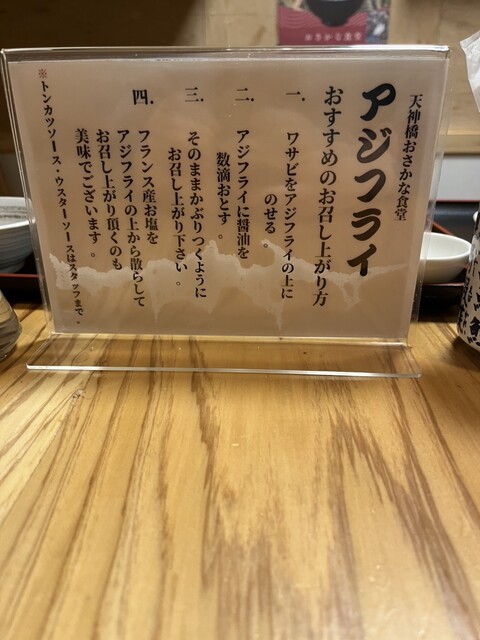 天神橋おさかな食堂
アジフライ
おすすめのお召し上がり方
一. ワサビをアジフライの上に
のせる。
二. アジフライに醤油を
数滴おとす。
三. そのままかぶりつくように
お召し上がり下さい。
四. フランス産お塩を
アジフライの上から散らして
お召し上がり頂くのも
美味でございます。
※トンカツソース・ウスターソースはスタッフまで。